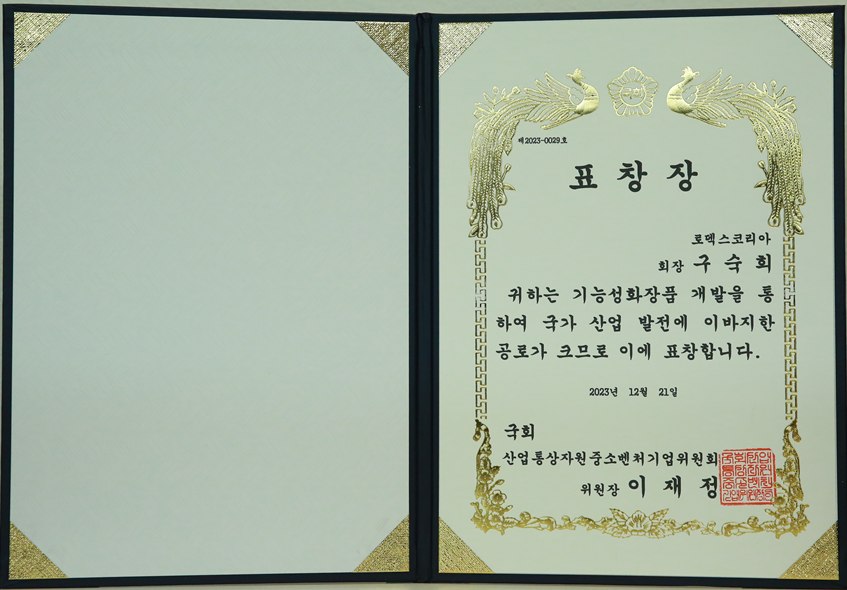 제2023-0029호
표창장
로덱스코리아
회장 구숙희
귀하는 기능성화장품 개발을 통
하여 국가 산업 발전에 이바지한
공로가 크므로 이에 표창합니다.
2023년 12월 21일
국회
산업통상자원중소벤처기업위원회
위원장 이재정